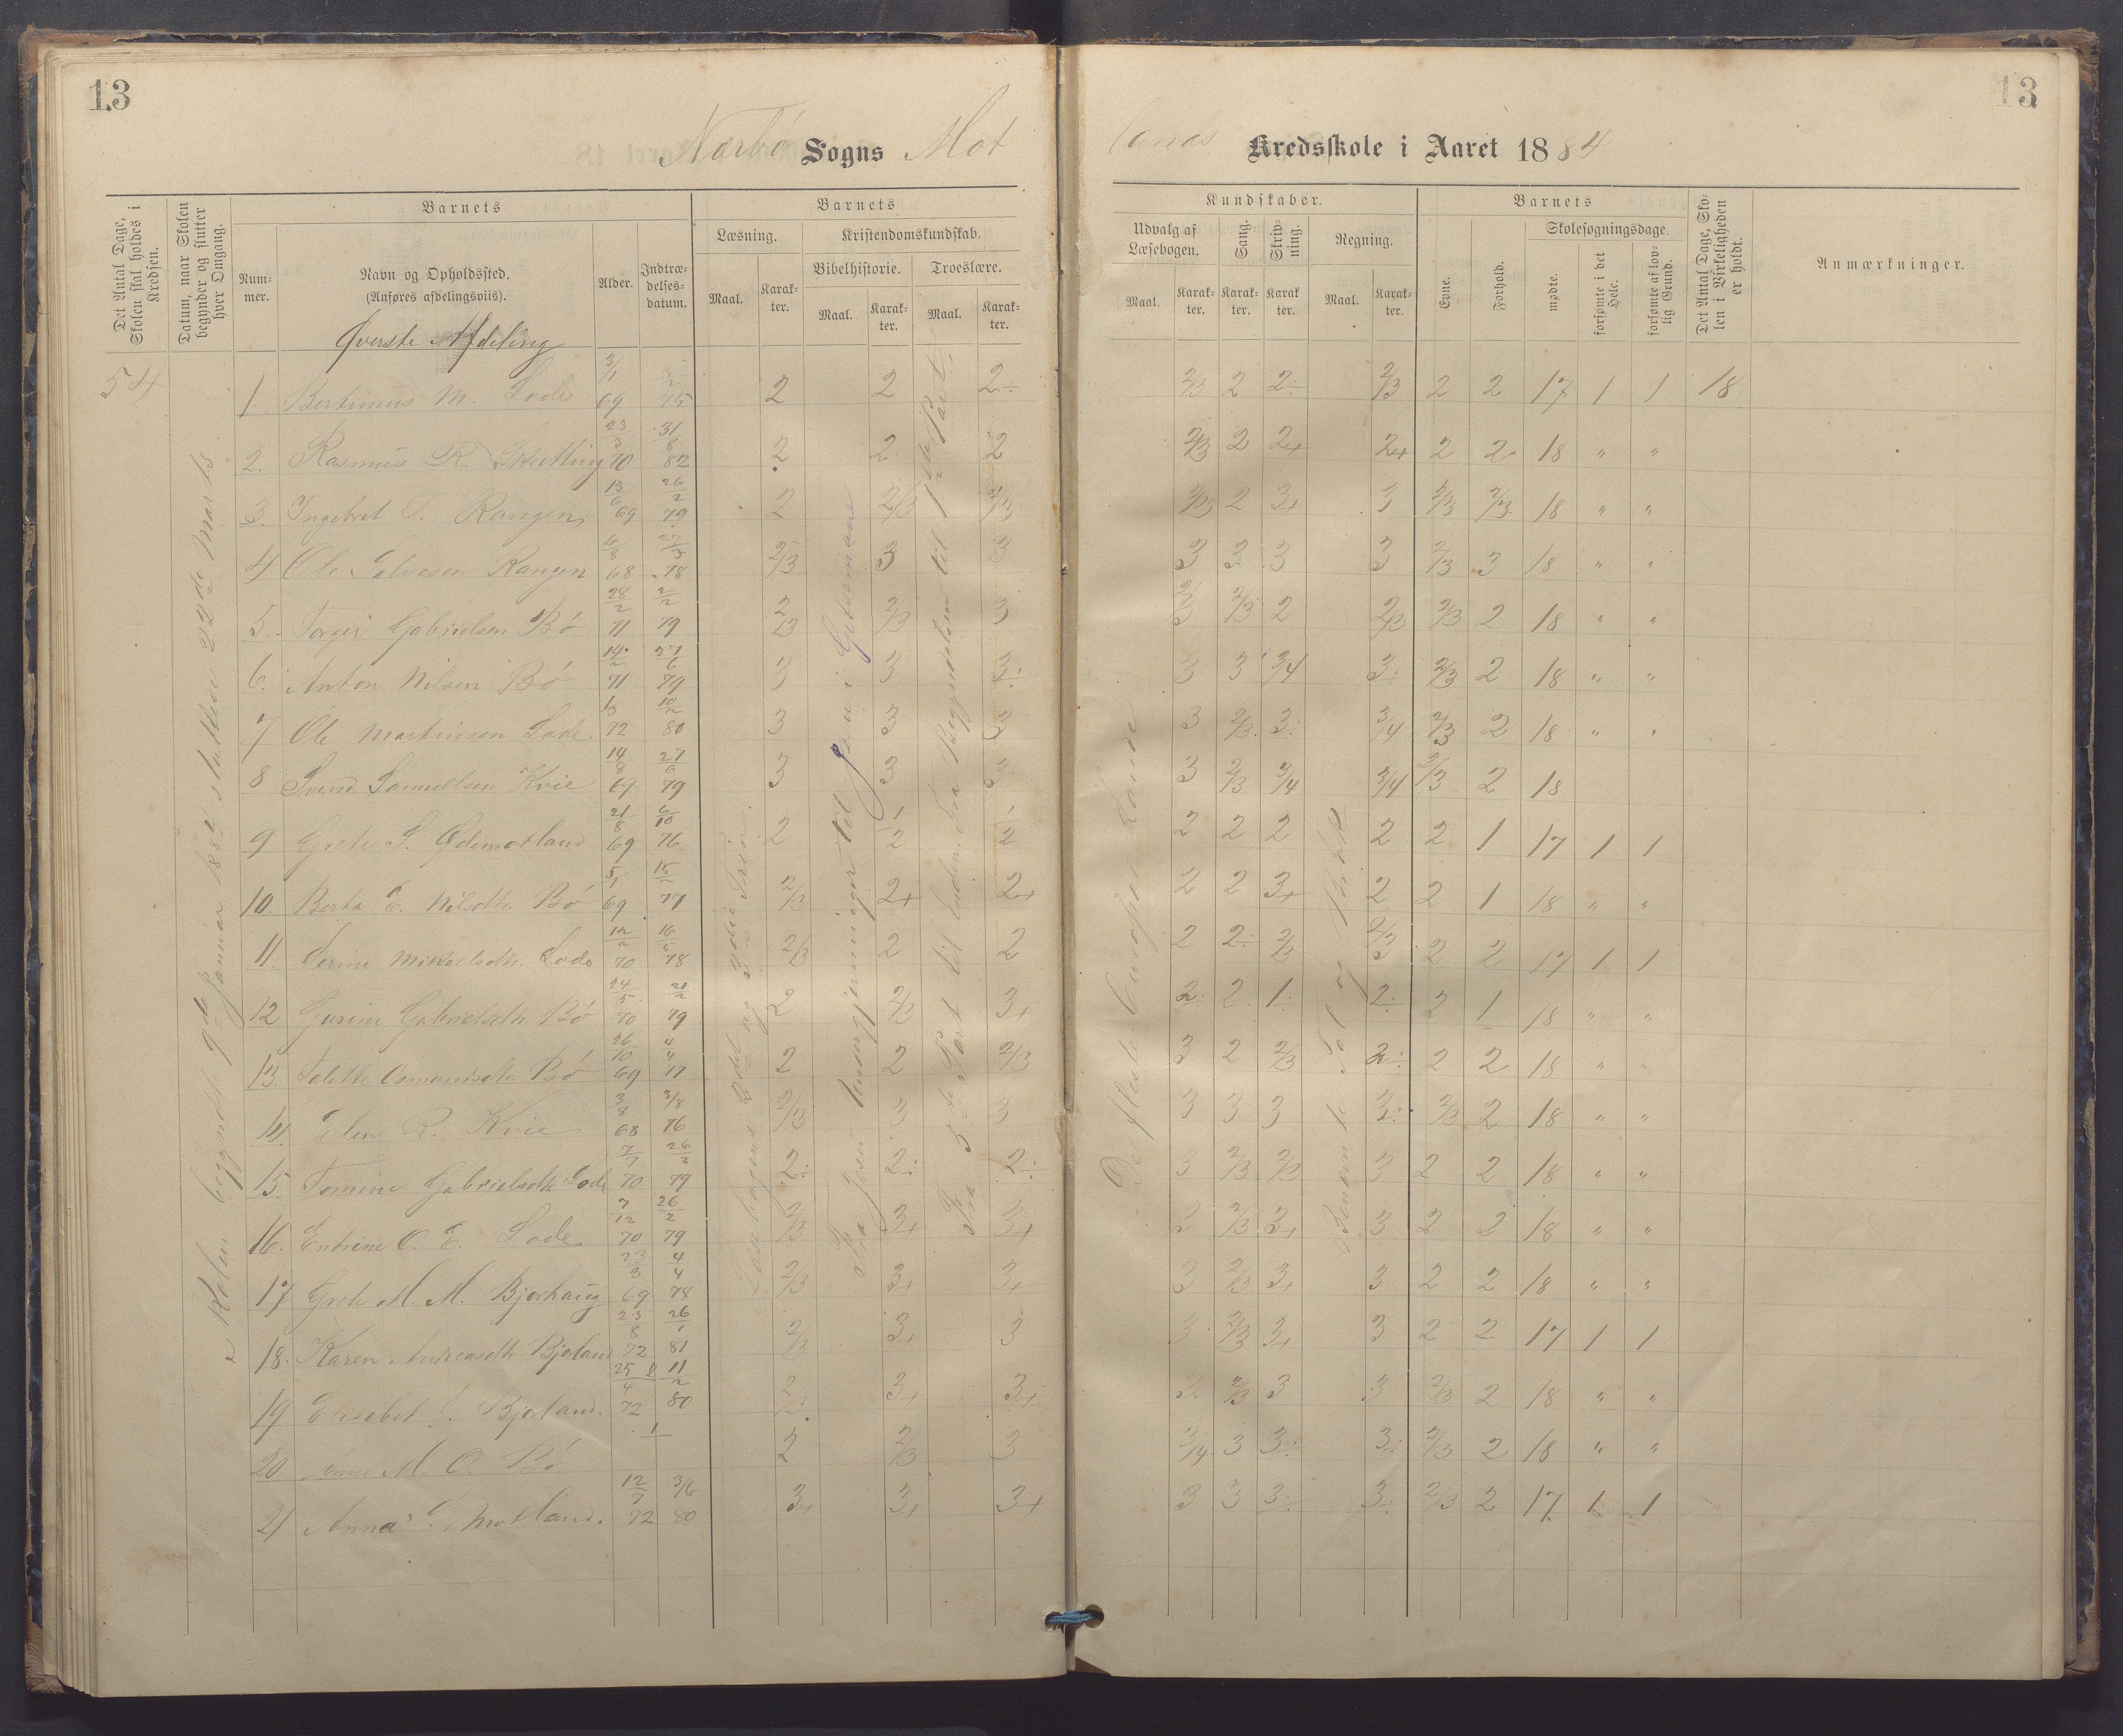 13
13
Nærbø Sogns Mot
lands Kredsskole i Aaret 1884
Det Antal Dage, Skolen skal holdes i Kredsen.
Datum, naar Skolen begynder og slutter hver Omgang.
Barnets
Nummer.
Navn og Opholdssted.
(Anføres afdelingsviis).
Alder.
Indtrædelsesdatum.
Barnets
Læsning.
Maal.
Karakter.
Kristendomskundskab.
Bibelhistorie.
Maal.
Karakter.
Troeslære.
Maal.
Karakter.
Kundskaber.
Udvalg af Læsebogen.
Maal.
Karakter.
Sang.
Karakter.
Skrivning.
Karakter.
Regning.
Maal.
Karakter.
Barnets
Evne.
Forhold.
Skolesøgningsdage
mødte.
forsømte i det Hele.
forsømte af lovlig Grund.
Det Antal Dage, Skolen i Virkeligheden er holdt.
Anmærkninger.
Øverste Afdeling
54
Skolen begyndt 9de Januar 1884 sluttede 22de Marts
Læsebogens 2det og 3die Trin.
Fra Jesu Undergjerninger til Jesus i Getsemane
Fra 5te Part til Enden. Fra Begyndelsen til 1ste Part.
De fleste europæ. Lande
Benævnte Tal og Brøk
1. Bertinius M. Lode 3/1 69 75 2 2 2÷ 2/3 2 2÷ 2/3 2 2 17 1 1 18
2. Rasmus R. Skutling 23/3 70 31/8 82 2 2 2 2/3 2 2+ 2+ 2 2 18 " "
3. Ingebret T. Rangen 13/6 69 26/2 79 2 2/3 2/3 2/3 2 3+ 3 2/3 2/3 18 " "
4 Ole Salvesen Rangen 6/8 68 78 2/3 3 3 3 3 3 3 2/3 3 18 " "
5. Torger Gabrielsen Bø 28/2 71 2/2 79 2/3 2/3 3 2/3 2/3 2 2/3 2/3 2 18 " "
6. Anton Nilsen Bø 14/2 71 27/6 79 3 3 3÷ 3 3 3/4 3÷ 2/3 2 18 " "
7 Ole Martinsen Lode 72 10/2 80 3 3 3 3 2/3 3÷ 3/4 2/3 2 18 " "
8 Svend Samuelsen Kvie 14/8 69 27/6 79 3 3 3 3 2/3 3/4 3/4 2/3 2 18
9 Grete S. Ødemotland 21/8 69 6/10 76 2 1/2 1/2 2 2 2 2 2 1 17 1 1
10. Berta E. Nilsdtr. Bø 5/1 69 15/2 77 2/3 2+ 2+ 2 2 3+ 2 2 1 18 " "
11. Serine Mikaelsdtr. Lode 12/2 70 16/5 78 2/3 2 2 2 2÷ 2/3 2/3 2 2 17 1 1
12 Gurine Gabrielsdtr. Bø 24/5 70 21/2 79 2 2/3 3+ 2÷ 2 1÷ 2÷ 2 1 18 " "
13. Talette Osmundsdtr. Bø 26/10 69 4/4 77 2 2 2/3 3 2 2/3 2÷ 2 2 18 " "
14. Elen R. Kvie 3/8 68 3/8 76 2/3 3 3 3 3 3 3÷ 2/3 2 18 " "
15. Tomine Gabrielsdtr. Lode 7/7 70 26/2 79 2÷ 2÷ 2÷ 3 2/3 2/3 3 2 2 18 " "
16. Entrine O. E. Lode 7/12 70 26/2 79 2/3 3+ 3+ 3 2/3 3+ 3 2 2 18 " "
17 Grete M. M. Bjorhaug 69 4/4 78 2/3 3+ 3+ 3 2/3 3+ 3 2 2 18 " "
18. Karen Andreasdtr. Bjorland 23/8 72 26/1 81 2/3 3+ 3 3 2/3 3+ 3 2 2 17 1 1
19 Elisabet Bjorland. 25/4 72 11/2 80 2/3 3+ 3+ 3 2/3 3 3 2/3 2 18 " "
20 Anne M. O. Bø 2 2/3 3 3/4 3 3÷ 3÷ 2/3 2 18 " "
21 Anna Motland. 12/7 72 3/6 80 3+ 3+ 3+ 3 3 3÷ 3÷ 2/3 2 17 1 1